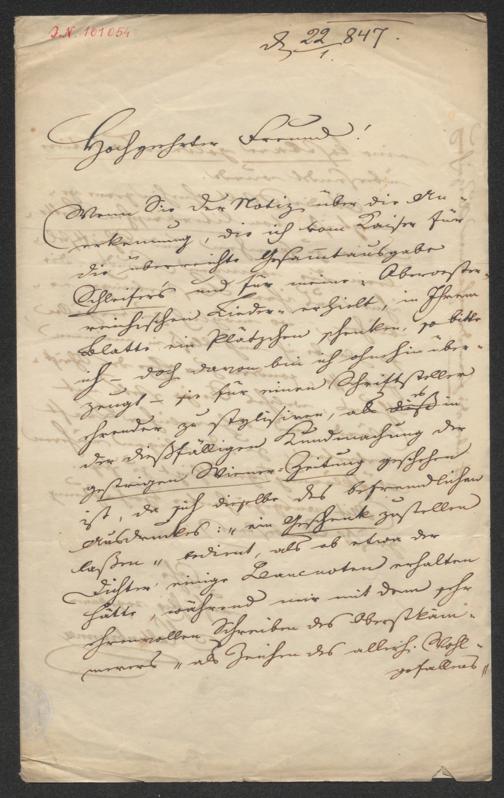 J.N. 101054
22/1. 847.
Hochgeehrter Freund!
Wenn Sie der Notiz über die An-
erkennung, die ich vom Kaiser für
die überreichte Gesammtausgabe
Schleifer's und für meine Oberoester-
reichischen Lieder erhielt, in Ihrem
Blatte ein Plätzchen schenken, so bitte
ich – doch davon bin ich ohnhin über-
zeugt – sie für einen Schriftsteller
ehrender zu stylisiren, als dieß in
der dießfälligen Kundmachung der
gestrigen Wiener-Zeitung geschehen
ist, da sich dieselbe des befremdlichen
Ausdruckes: „ein Geschenk zustellen
laßen" bedient, als ob etwa der
Dichter einige Banknoten erhalten
hätte, während mir mit dem sehr
ehrenvollen Schreiben des Oberstkäm-
merers „als Zeichen des allerh. Wohl-
gefallens"